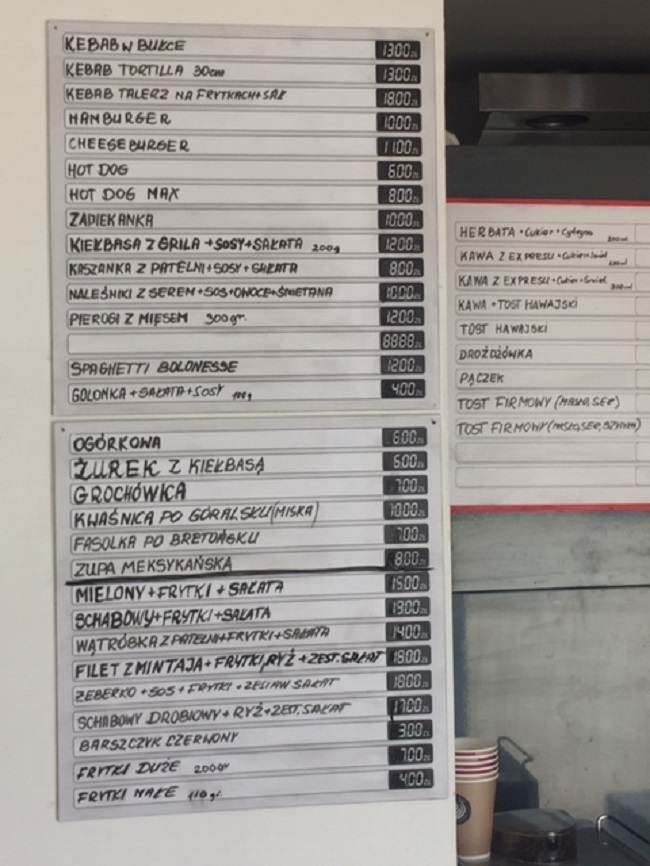 KEBAB W BUŁCE 13.00 zł
KEBAB TORTILLA 30cm 13.00 zł
KEBAB TALERZ NA FRYTKACH+SAŁ 18.00 zł
HAMBURGER 10.00 zł
CHEESEBURGER 11.00 zł
HOT DOG 6.00 zł
HOT DOG MAX 8.00 zł
ZAPIEKANKA 10.00 zł
KIEŁBASA Z GRILA +SOSY+SAŁATA 200g 12.00 zł
KASZANKA Z PATELNI+SOSY+SAŁATA 8.00 zł
NALEŚNIKI Z SEREM+SOS+OWOCE+ŚMIETANA 10.00 zł
PIEROGI Z MIĘSEM 300gr. 12.00 zł
88.88 zł
SPAGHETTI BOLONESSE 12.00 zł
GOLONKA +SAŁATA+SOSY 100g 4.00 zł
OGÓRKOWA 6.00 zł
ŻUREK Z KIEŁBASĄ 6.00 zł
GROCHÓWKA 7.00 zł
KWAŚNICA PO GÓRALSKU (MISKA) 10.00 zł
FASOLKA PO BRETOŃSKU 7.00 zł
ZUPA MEKSYKAŃSKA 8.00 zł
MIELONY+FRYTKI+SAŁATA 15.00 zł
SCHABOWY+FRYTKI+SAŁATA 19.00 zł
WĄTRÓBKA Z PATELNI+FRYTKI+SAŁATA 14.00 zł
FILET Z MINTAJA+FRYTKI,RYŻ+ZEST.SAŁAT 18.00 zł
ŻEBERKO +SOS+FRYTKI+ZESTAW SAŁAT 18.00 zł
SCHABOWY DROBIOWY+RYŻ+ZEST.SAŁAT 17.00 zł
BARSZCZYK CZERWONY 3.00 zł
FRYTKI DUŻE 200gr 7.00 zł
FRYTKI MAŁE 4.00 zł
HERBATA +Cukier+Cytryna
KAWA Z EXPRESU
KAWA Z EXPRESU
KAWA +TOST HAWAJSKI
TOST HAWAJSKI
DROŻDŻÓWKA
PĄCZEK
TOST FIRMOWY
TOST FIRMOWY